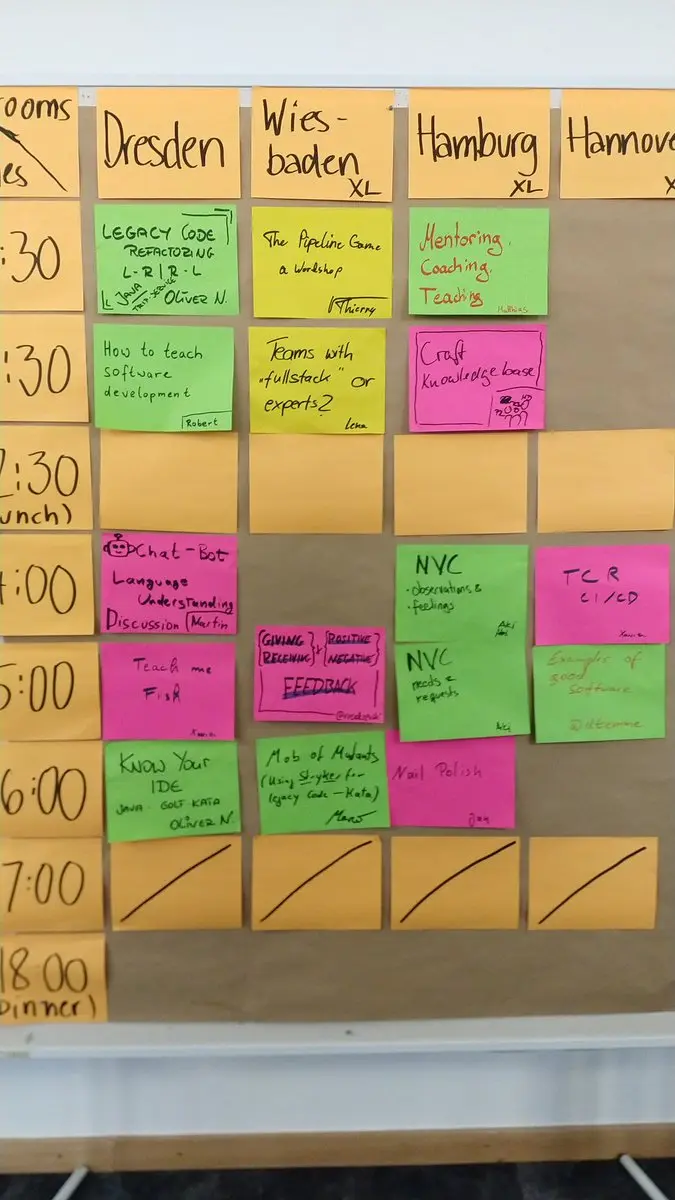 ooms
es
Dresden
Wies-
baden
XL
Hamburg
XL
Hannove
X
:30
LEGACY CODE
REFACTORING
L-R|R-L
JAVA
TRIP-SERVICE
OLIVER N.
The Pipeline Game
a Workshop
Thierry
Mentoring,
Coaching,
Teaching
Matthias
:30
How to teach
software
development
Robert
Teams with
"fullstack" or
experts?
Lena
Craft
Knowledgebase
2:30
unch)
4:00
Chat-Bot
Language
Understanding
Discussion
Martin
NVC
·observations &
·feelings
Aki
TCR
CI/CD
Xavier
5:00
Teach me
Fish
Xavier
GIVING
RECEIVING
+
POSITIVE
NEGATIVE
FEEDBACK
NVC
needs &
requests
Aki
Examples of
good
Software
6:00
KNOW YOUR
IDE
JAVA - GOLF KATA
OLIVER N.
Mob of Mutants
(Using Stryker for
legacy Code - Kata)
Nail Polish
Jan
7:00
18 00
Dinner)